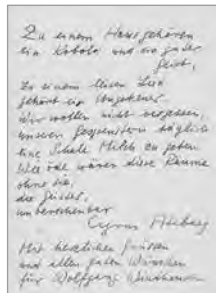 Zu einem Haus gehören
ein Kobold und ein guter
Geist,
Zu einem leisen Leid
gehört ein Ungeheuer
Wir wollen nicht vergessen,
unseren Gespenstern täglich
eine Schale Milch zu geben
Wie öde wären diese Räume
ohne sie,
die Geister,
unberechenbar
Cyrus Atabay
Mit herzlichen Grüssen
und allen guten Wünschen
für Wolfgang